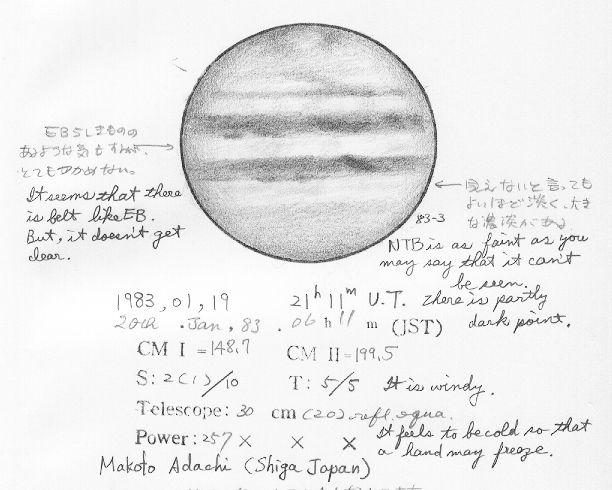 EBらしきものの
あるような気もするが、
とてもつかめない。
It seems that there
is belt like EB.
But, it doesn't get
clear.
見えないと言っても
よいほど淡く、大き
な濃淡がある
83-3
NTB is as faint as you
may say that it can't
be seen.
There is partly
dark point.
1983, 01, 19 21h 11m U.T.
20th . Jan, 83 . 06 h 11 m (JST)
CM I = 148.7 CM II = 199.5
S: 2(1)/10 T: 5/5 It is windy.
Telescope: 30 cm (20) refl. equa.
Power: 257 × × ×
It feels to be cold so that
a hand may freeze.
Makoto Adachi (Shiga Japan)